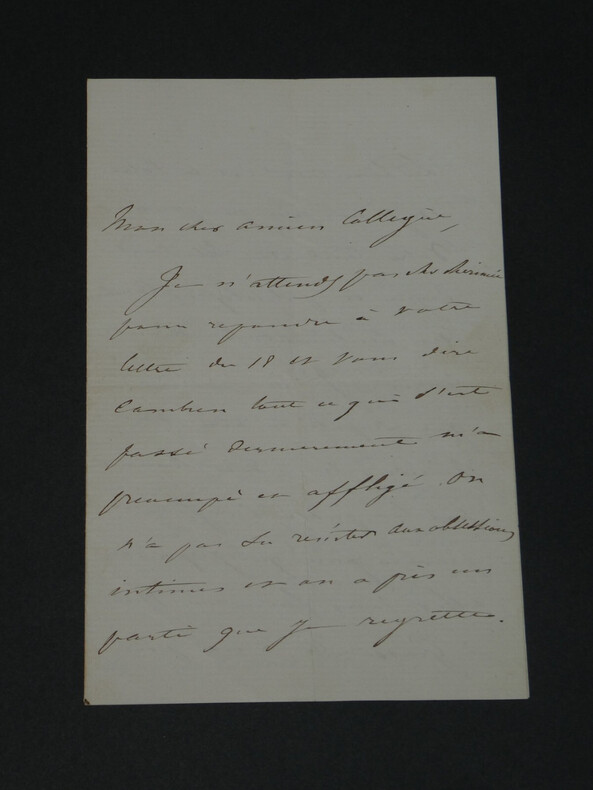 Mon cher ancien Collegue,
Je n'attends pas
pour repondre à votre
lettre du 18 et vous dire
combien tout ce qui s'est
passé dernierement m'a
preoccupé et affligé. On
n'a pas su resister aux obsessions
intimes et on a pris un
parti que je regrette.